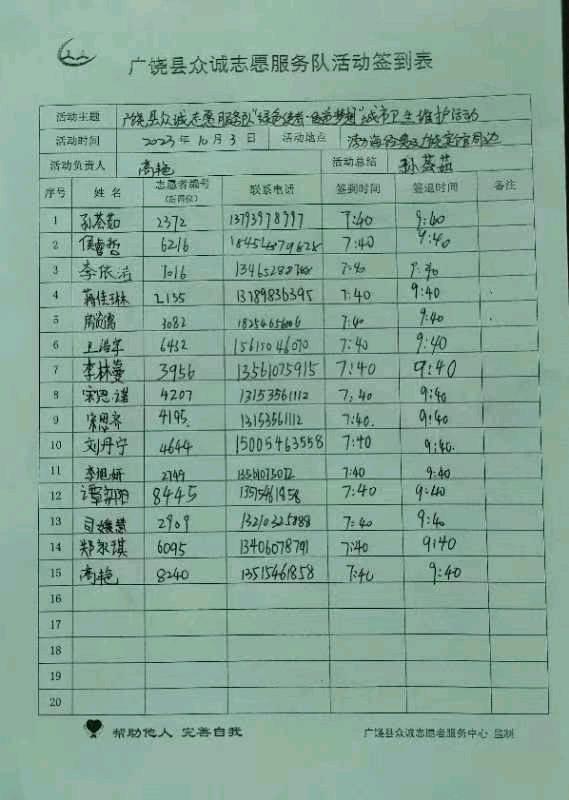 广饶县众诚志愿服务队活动签到表
活动主题 广饶县众诚志愿服务队"绿色 城市卫生维护活动
活动时间 2023年10月3日 活动地点 周边
活动负责人 高艳 活动总结 孙荟茹
序号 姓名 志愿者编号(后四位) 联系电话 签到时间 签退时间 备注
1 孙荟茹 2372 13793978997 7:40 9:40
2 侯睿哲 6216 7:40 9:40
3 李依洁 7016 7:40 9:40
4 蒋佳琳 2135 13789836395 7:40 9:40
5 3082 7:40 9:40
6 王浩宇 6432 15615046070 7:40 9:40
7 李林蔓 3956 13561075915 7:40 9:40
8 宋思谨 4207 13153561112 7:40 9:40
9 宋思齐 4195 13153561112 7:40 9:40
10 刘丹宁 4644 15005463558 7:40 9:40
11 2799 7:40 9:40
12 8445 7:40 9:40
13 2909 7:40 9:40
14 6095 13406078791 7:40 9:40
15 高艳 8240 13515461858 7:40 9:40
16
17
18
19
20
帮助他人 完善自我 广饶县众诚志愿者服务中心 监制